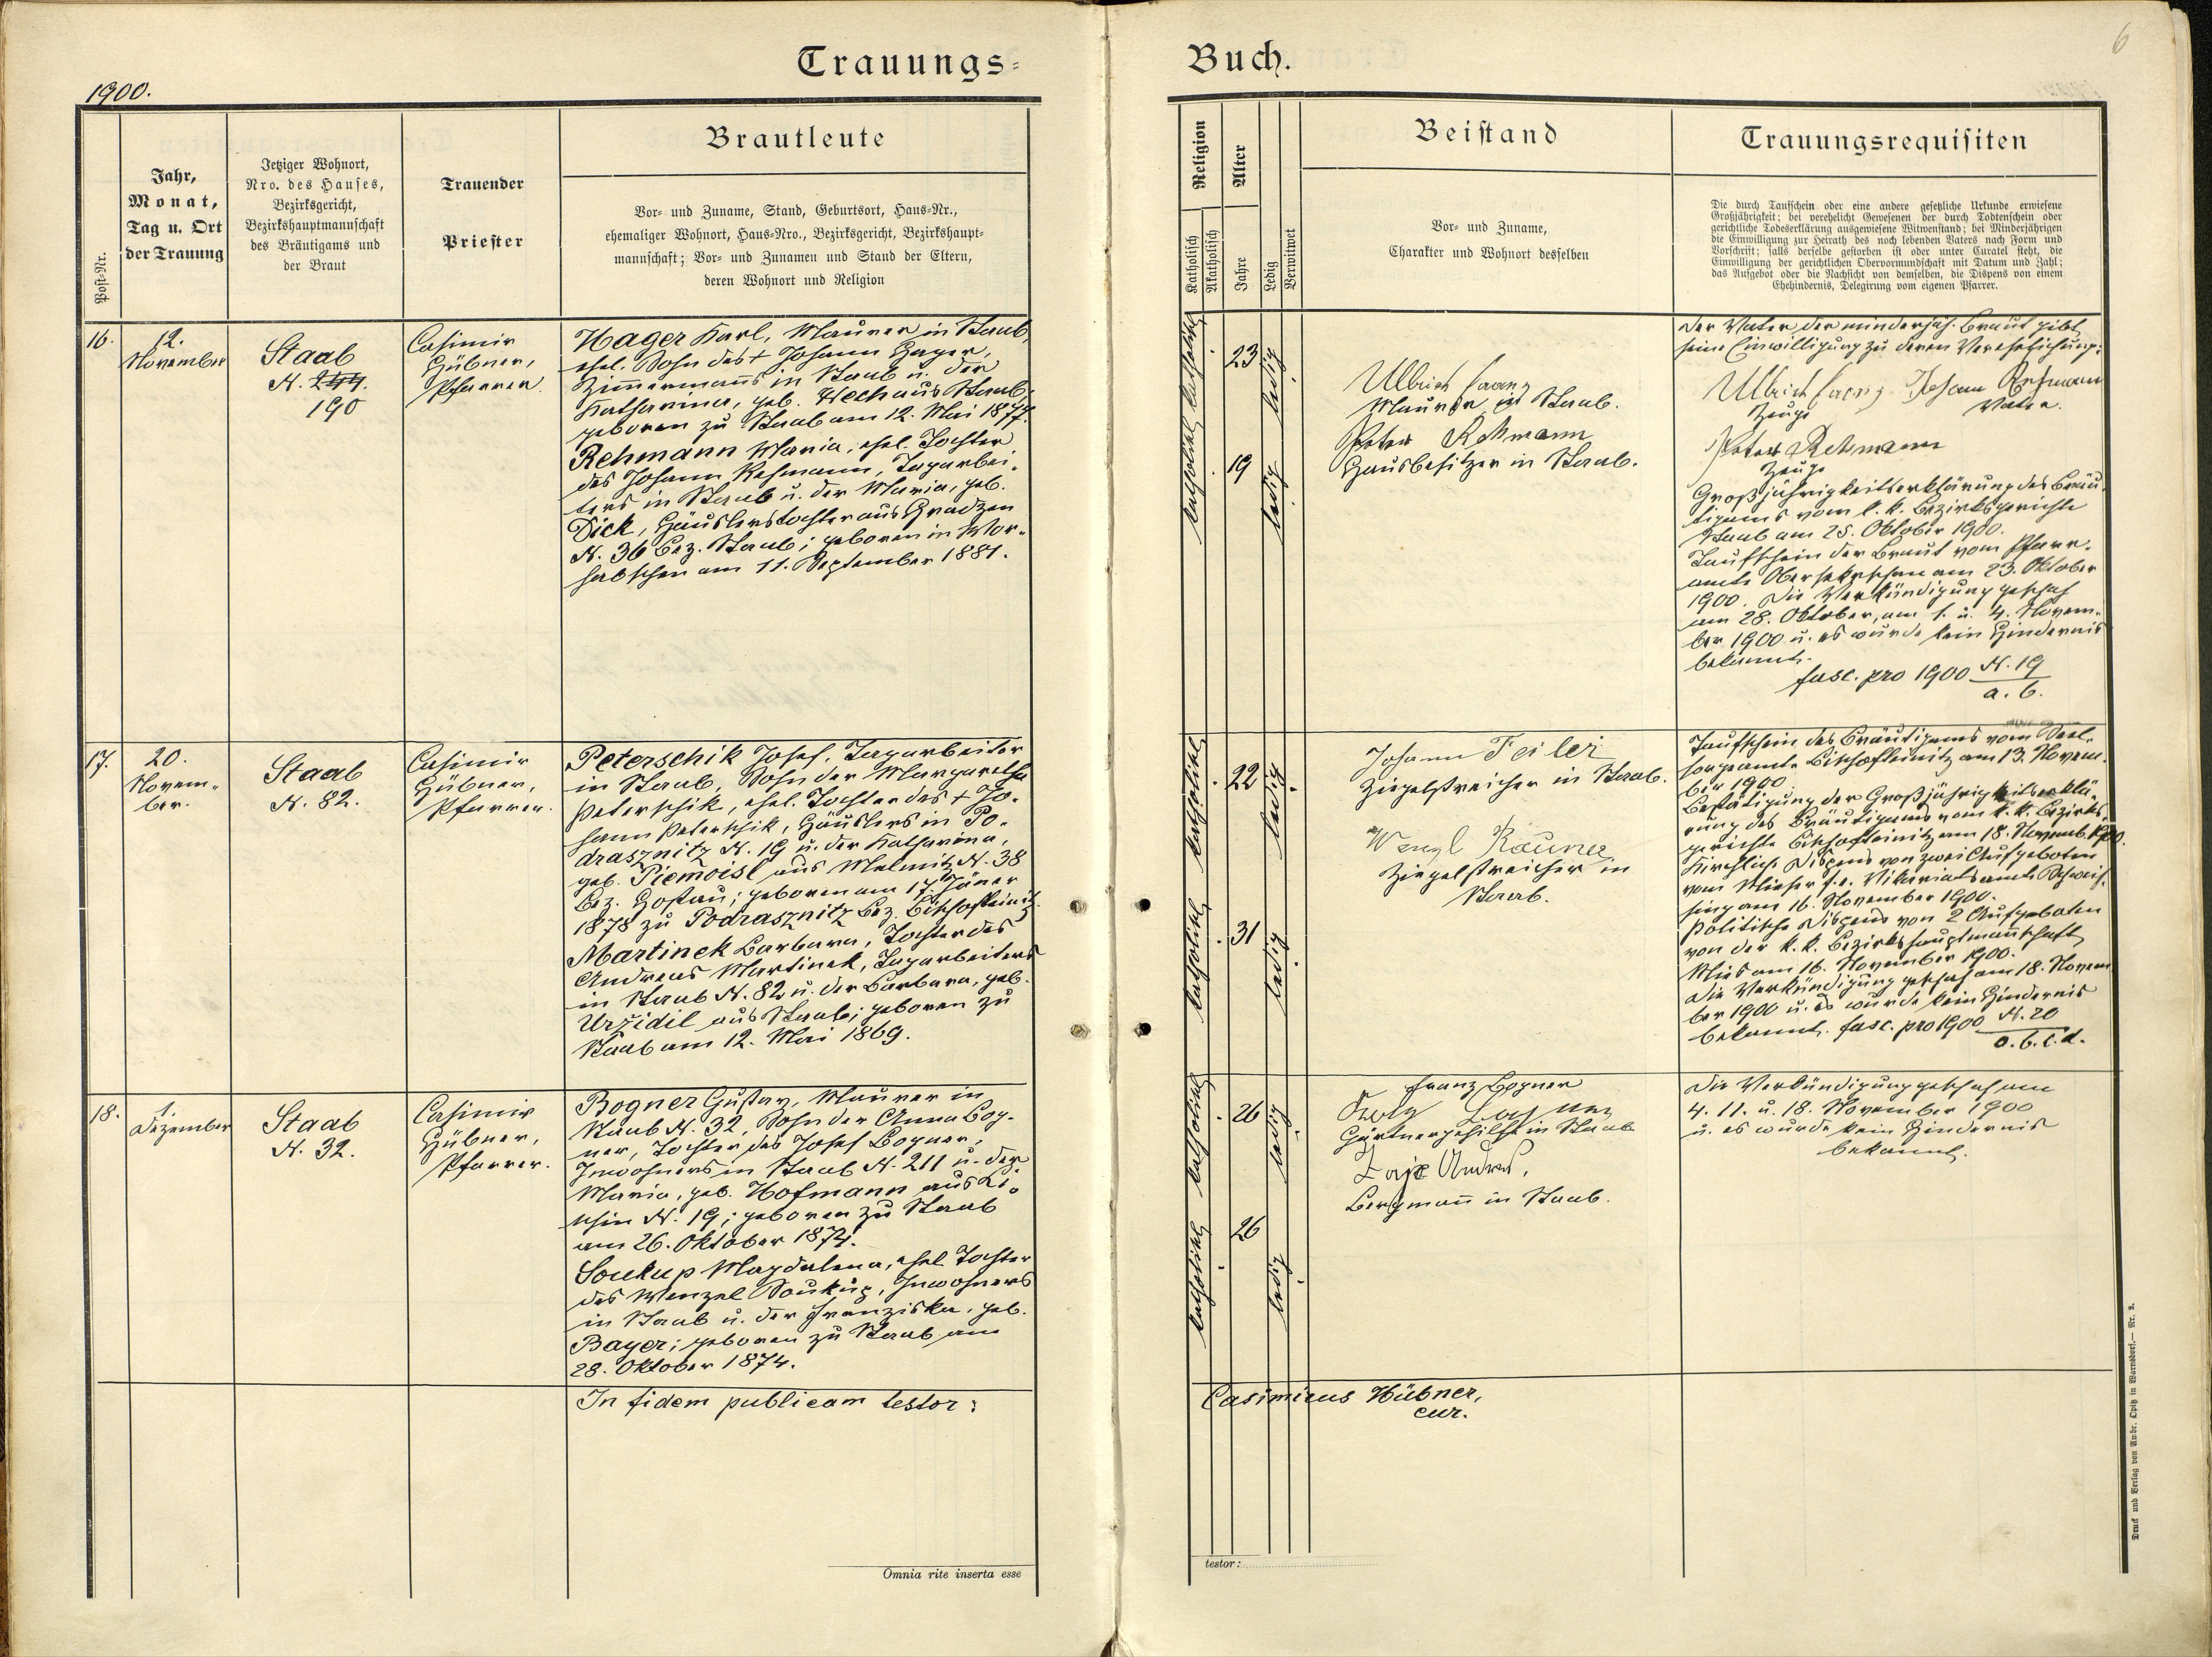 1900.
Trauungs-
Buch.
6
Post-Nr.
Jahr,
Monat,
Tag u. Ort
der Trauung
Jetziger Wohnort,
Nro. des Hauses,
Bezirksgericht,
Bezirkshauptmannschaft
des Bräutigams und
der Braut
Trauender
Priester
Brautleute
Vor- und Zuname, Stand, Geburtsort, Haus-Nr.,
ehemaliger Wohnort, Haus-Nro., Bezirksgericht, Bezirkshaupt-
mannschaft; Vor- und Zunamen und Stand der Eltern,
deren Wohnort und Religion
Religion
Katholisch
Akatholisch
Alter
Jahre
Ledig
Verwitwet
Beistand
Vor- und Zuname,
Charakter und Wohnort desselben
Trauungsrequisiten
Die durch Taufschein oder eine andere gesetzliche Urkunde erwiesene
Großjährigkeit; bei verehelicht Gewesenen der durch Todtenschein oder
gerichtliche Todeserklärung ausgewiesene Witwenstand; bei Minderjährigen
die Einwilligung zur Heirath des noch lebenden Vaters nach Form und
Vorschrift; falls derselbe gestorben ist oder unter Curatel steht, die
Einwilligung der gerichtlichen Obervormundschaft mit Datum und Zahl;
das Aufgebot oder die Nachsicht von demselben, die Dispens von einem
Ehehindernis, Delegirung vom eigenen Pfarrer.
16.
12.
November
Staab
N. 244.
190
Casimir
Hübner,
Pfarrer.
Hager Karl, Maurer in Staab,
ehel. Sohn des + Johann Hager,
Zimmermanns in Staab u. der
Katharina, geb. Hech aus Staab,
geboren zu Staab am 12. Mai 1877.
Rehmann Maria, ehel. Tochter
des Johann Rehmann, Tagarbei-
ters in Staab u. der Maria, geb.
Dick, Häuslerstochter aus Gradzen
N. 36 Bez. Staab; geboren in Wor-
habschen am 11. September 1881.
katholisch katholisch
23
ledig
19
ledig
Ullrich Franz
Maurer in Staab.
Peter Rehmann
Hausbesitzer in Staab.
Der Vater der minderjäh. Braut gibt
seine Einwilligung zu deren Verehelichung:
Ullrich Franz Johann Rehmann
Zeuge Vater.
Peter Rehmann
Zeuge
Großjährigkeitserklärung des Bräu-
tigams vom k. k. Bezirksgerichte
Staab am 25. Oktober 1900.
Taufschein der Braut vom Pfarr-
amte am 23. Oktober
1900. Die Verkündigung geschah
am 28. Oktober, am 1. u. 4. Novem-
ber 1900 u. es wurde kein Hindernis
bekannt.
fasc. pro 1900 N. 19
a. b.
17.
20.
Novem-
ber.
Staab
N. 82.
Casimir
Hübner,
Pfarrer.
Peterschik Josef, Tagarbeiter
in Staab, Sohn der Margaretha
Peterschik, ehel. Tochter des + Jo-
hann Peterschik, Häuslers in Po-
drasznitz N. 19 u. der Katharina,
geb. Piemoisl aus Melmitz N. 38
Bez. Hostau; geboren am 17. Jäner
1878 zu Podrasznitz Bez. Bischofteinitz.
Martinek Barbara, Tochter des
Andreas Martinek, Tagarbeiters
in Staab N. 82 u. der Barbara, geb.
Uržidil aus Staab; geboren zu
Staab am 12. Mai 1869.
katholisch
22
ledig
katholisch
31
ledig
Johann Feiler
Ziegelstreicher in Staab.
Wenzl Rauner
Ziegelstreicher in
Staab.
Taufschein des Bräutigams vom Seel-
sorgeamte Bischofteinitz am 13. Novem-
ber 1900
Bestätigung der Großjährigkeitserklä-
rung des Bräutigams vom k. k. Bezirks-
gerichte Bischofteinitz am 18. Novemb. 1900.
Kirchliche Dispens von zwei Aufgeboten
vom Mieser f.e. Vikariatsamte
am 16. November 1900.
Politische Dispens von 2 Aufgeboten
von der k. k. Bezirkshauptmannschaft
Mies am 16. November 1900.
Die Verkündigung geschah am 18. Novem-
ber 1900 u. es wurde kein Hindernis
bekannt. fasc. pro 1900 N. 20
a. b. c. d.
18.
1.
Dezember
Staab
N. 32.
Casimir
Hübner,
Pfarrer.
Bogner Gustav, Maurer in
Staab N. 32, Sohn der Anna Bog-
ner, Tochter des Josef Bogner,
Inwohners in Staab N. 211 u. der
Maria, geb. Hofmann aus Li-
schin N. 19; geboren zu Staab
am 26. Oktober 1874.
Soukup Magdalena, ehel. Tochter
des Wenzel Soukup, Inwohners
in Staab u. der Franziska, geb.
Bayer; geboren zu Staab am
28. Oktober 1874.
katholisch
26
ledig
katholisch
26
ledig
Franz Bogner
Gärtnergehilfe in Staab
Andreas,
Bergmann in Staab.
Die Verkündigung geschah am
4. 11. u. 18. November 1900
u. es wurde kein Hindernis
bekannt.
In fidem publicam testor:
Casimirus Hübner,
cur.
Omnia rite inserta esse
testor:
Druck und Verlag von Ambr. Opitz in Warnsdorf.— Nr. 2.